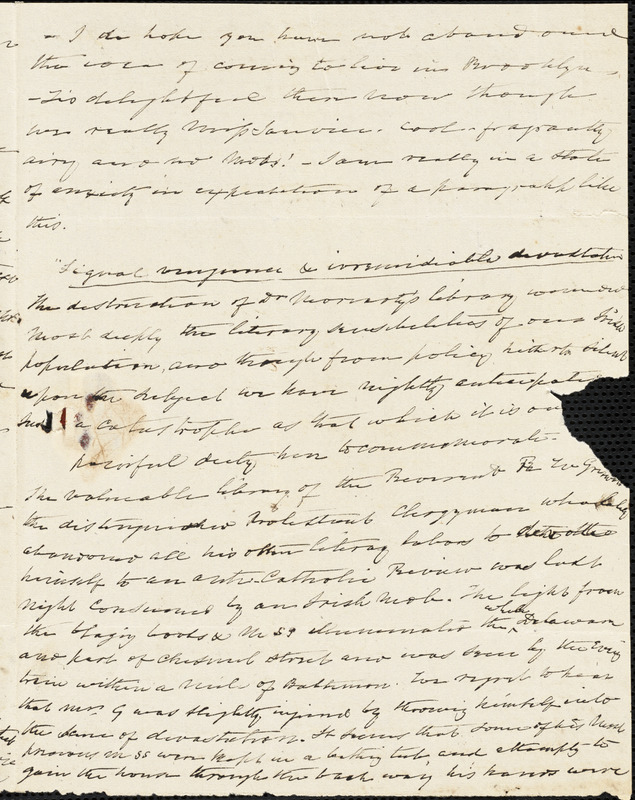 - I do hope you have not abandoned
the idea of coming to live in Brooklyn -
- Tis delightful there now though
we really Miss Janvier. Cool - fragrantly
airy and no Mobs! - I am really in a state
of anxiety in expectation of a paragraph like
this.
"Signal vengeance & irremidiable devastation
The destruction of Dr Moriarty's library wounded
most deeply the literary sensibilities of our Irish
population, and though from policy hitherto silent
upon the subject we have nightly anticipated
such a catastrophe as that which it is our
painful duty here to commemorate.
The valuable library of the Reverend Griswold
the distinguished Protestant Clergyman who has
abandoned all his other literary labors to devote
himself to an anti-Catholic Review was last
night consumed by an Irish Mob. The light from
the blazing books & M SS illuminated the whole Delaware
and part of Chesnut street and was seen by the Evening
train within a mile of Baltimore. We regret to hear
that Mr. G was slightly injured by throwing himself into
the scene of devastation. It seems that some of his most
precious M SS were kept in a bathing tub, and attempting to
gain the house through the back way his hands were